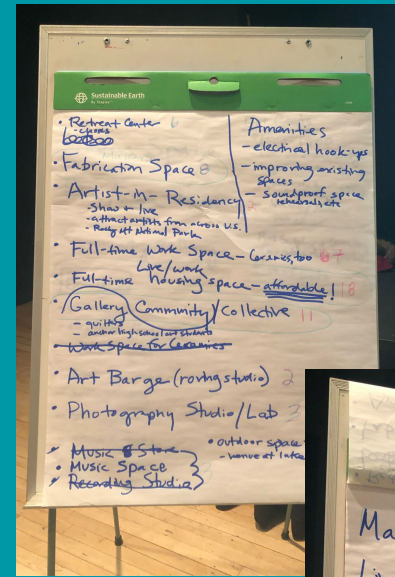 Sustainable Earth
By Staples
• Retreat Center 6
- choirs
• Fabrication Space 8
• Artist-in-Residency
- show + live
- attract artists from across U.S.
- Rocky Mt National Park
• Full-time Work Space - Ceramics, too 7
Live/work
• Full-time housing space - affordable! 18
• Gallery Community/Collective 11
- quilters
- anchor high school art students
• Work Space for Ceramics
• Art Barge (roving studio) 2
• Photography Studio/Lab 2
• Music Store
• Music Space
• Recording Studio
• outdoor space
- venue at lake
Amenities
- electrical hook-ups
- improving existing
spaces
- soundproof space
rehearsals, etc
Ma
Li